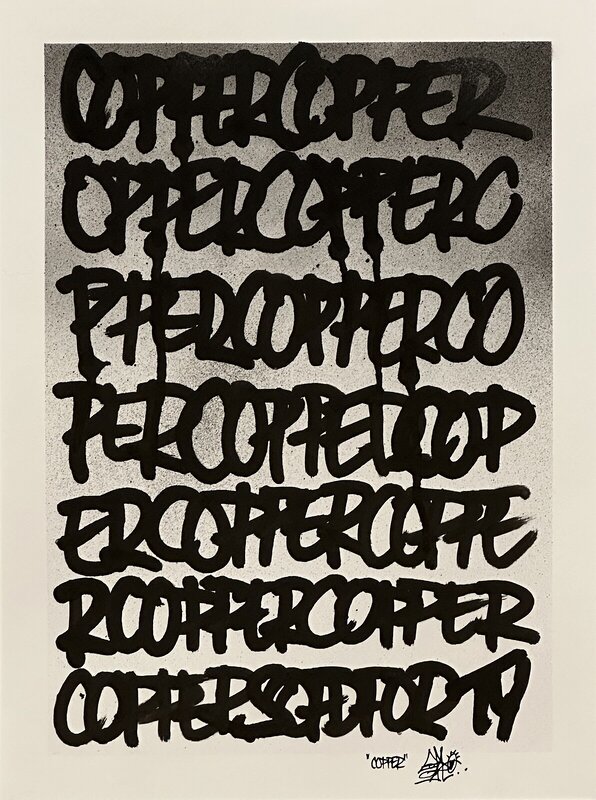 COPPERCOPPER
OPPERCOPPERC
PPERCOPPERCO
PERCOPPERCOP
ERCOPPERCOPPE
RCOPPERCOPPER
COPPER
"COPPER"